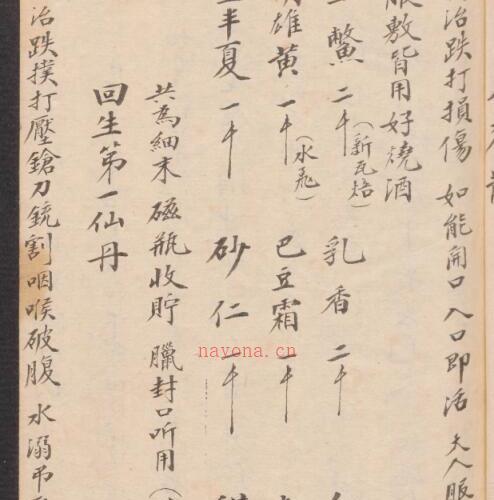 治跌打損傷 如能開口 入口即活 大人服
服敷皆用好燒酒
鱉二錢(新瓦焙) 乳香二錢
雄黃一錢(水飛) 巴豆霜二錢
半夏一錢 砂仁二錢
共為細末 磁瓶收貯 臘封口听用
回生第一仙丹
治跌撲打壓鎗刀銃割咽喉破腹 水溺吊
nayona.cn